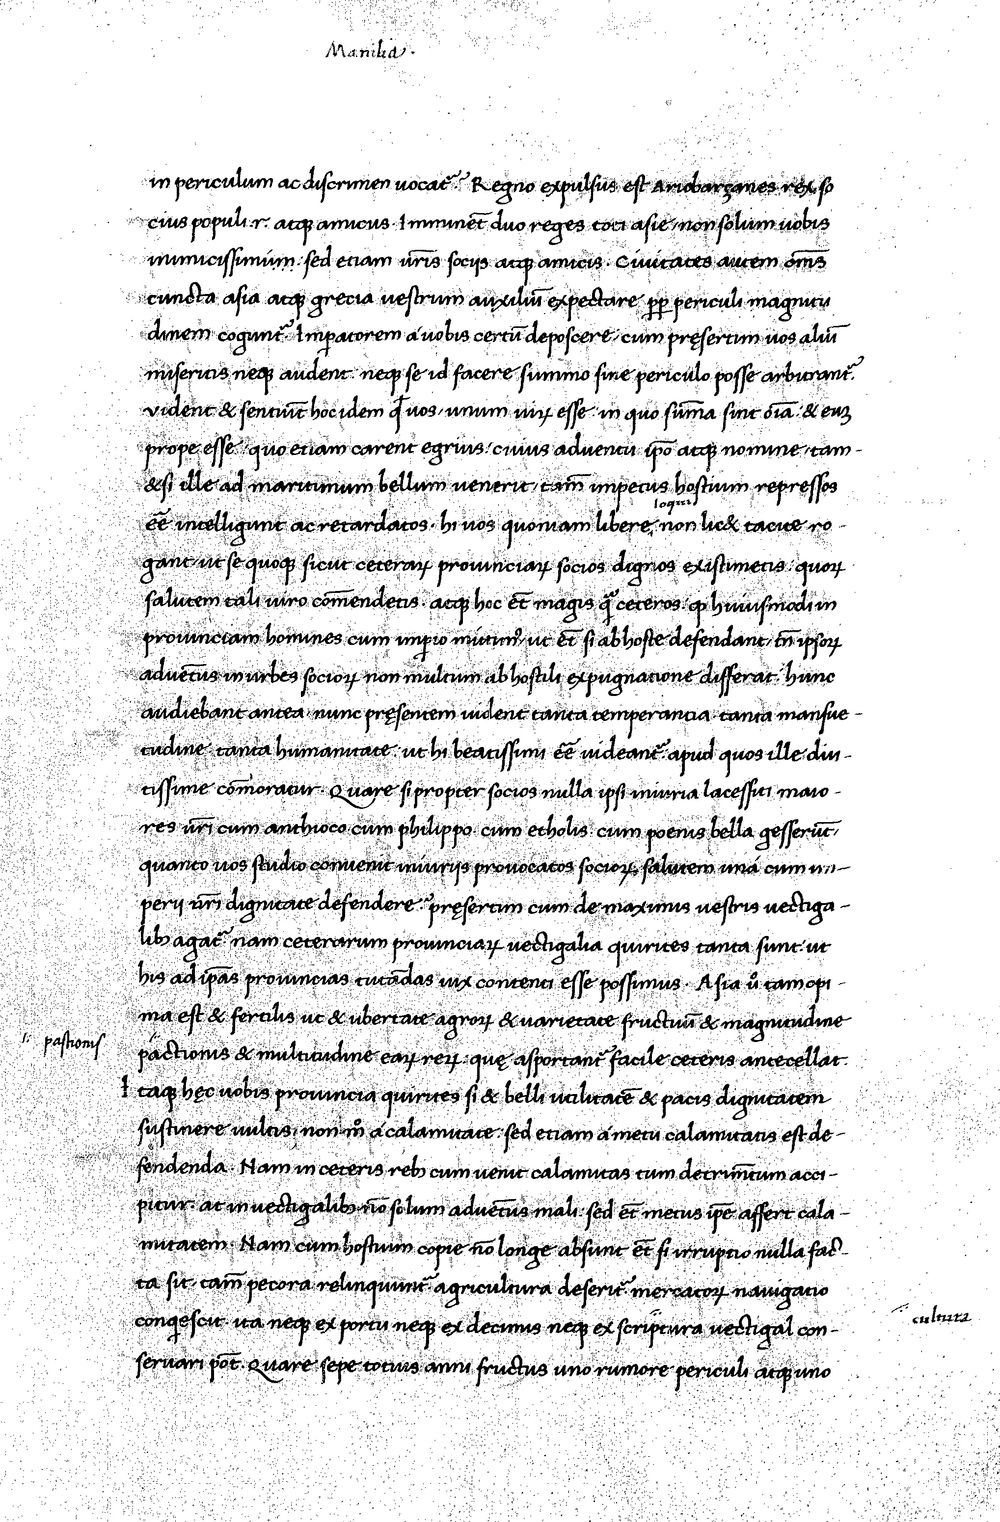 Manilia.
in periculum ac discrimen uocat̃. Regno expulsus est Ariobarzanes rex. so
cius populi .r. atqꝫ amicus. Imminẽt duo reges toti asie, non solum uobis
inimicissimum. sed etiam ur̃is sociis atqꝫ amicis. Ciuitates autem om̃s
cuncta asia atqꝫ grecia uestrum auxiliũ expectare pp̃ periculi magnitu
dinem cogunt̃. Imꝑatorem a uobis certũ deposcere, cum pręsertim uos aliũ
miseritis neqꝫ audent. neqꝫ se id facere summo sine periculo posse arbitrant̃.
vident & sentiũt hoc idem q̃ uos, unum uirꝝ esse. in quo sũma sint oĩa. & euꝫ
prope esse. quo etiam carent egrius. cuius aduentu ip̃o atqꝫ nomine, tam-
&si ille ad maritimum bellum uenerit, tam̃ impetus hostium repressos
eẽ intelligunt ac retardatos. hi uos quoniam libere, non lic& tacite ro-
loqui
gant, ut se quoqꝫ sicut ceterarꝝ prouinciarꝝ socios dignos existimetis. quorꝝ
salutem tali uiro com̃endetis. atqꝫ hoc et̃ magis q̃ ceteros. ꝙ huiusmodi in
prouinciam homines cum imꝑio mitim᷒, ut et̃ si ab hoste defendant, tñ ipsorꝝ
aduẽtus in urbes sociorꝝ non multum ab hostili expugnatione differat. hunc
audiebant antea. nunc pręsentem uident tanta temperantia. tanta mansue-
tudine. tanta humanitate. ut hi beatissimi eẽ uideant̃. apud quos ille diu-
tissime com̃oratur. Quare si propter socios nulla ipsi iniuria lacessiti maio-
res ur̃i cum anthioco. cum philippo. cum etholis. cum poenis bella gesserũt,
quanto uos studio conuenit iniuriis prouocatos sociorꝝ. salutem una cum im-
perij ur̃i dignitate defendere. pręsertim cum de maximis uestris uectiga-
libꝫ agat̃. nam ceterarum prouinciarꝝ uectigalia quirites tanta sunt. ut
his ad ip̃as prouincias tutãdas uix contenti esse possimus. Asia u͛ tam opi-
ma est & fertilis ut & ubertate agrorꝝ & uarietate fructuũ & magnitudine
pactionis & multitudine earꝝ rerꝝ. quę asportant̃ facile ceteris antecellat.
i. pastionis
Itaqꝫ hęc uobis prouincia quirites si & belli utilitatẽ & pacis dignitatem
sustinere uultis, non mͦ a calamitate. sed etiam a metu calamitatis est de-
fendenda. Nam in ceteris rebꝫ cum uenit calamitas tum detrim̃tum acci-
pitur. at in uectigalibꝫ nõ solum aduẽtus mali. sed et̃ metus ip̃e affert cala-
mitatem. Nam cum hostium copie nõ longe absunt et̃ si irruptio nulla fac-
ta sit. tam̃ pecora relinquunt̃. agricultura deserit̃. mercatorꝝ nauigatio
conq̃escit. ita neqꝫ ex portu neqꝫ ex decimis neqꝫ ex scriptura uectigal con-
cultura
seruari pot̃. Quare sepe totius anni fructus uno rumore periculi atqꝫ uno